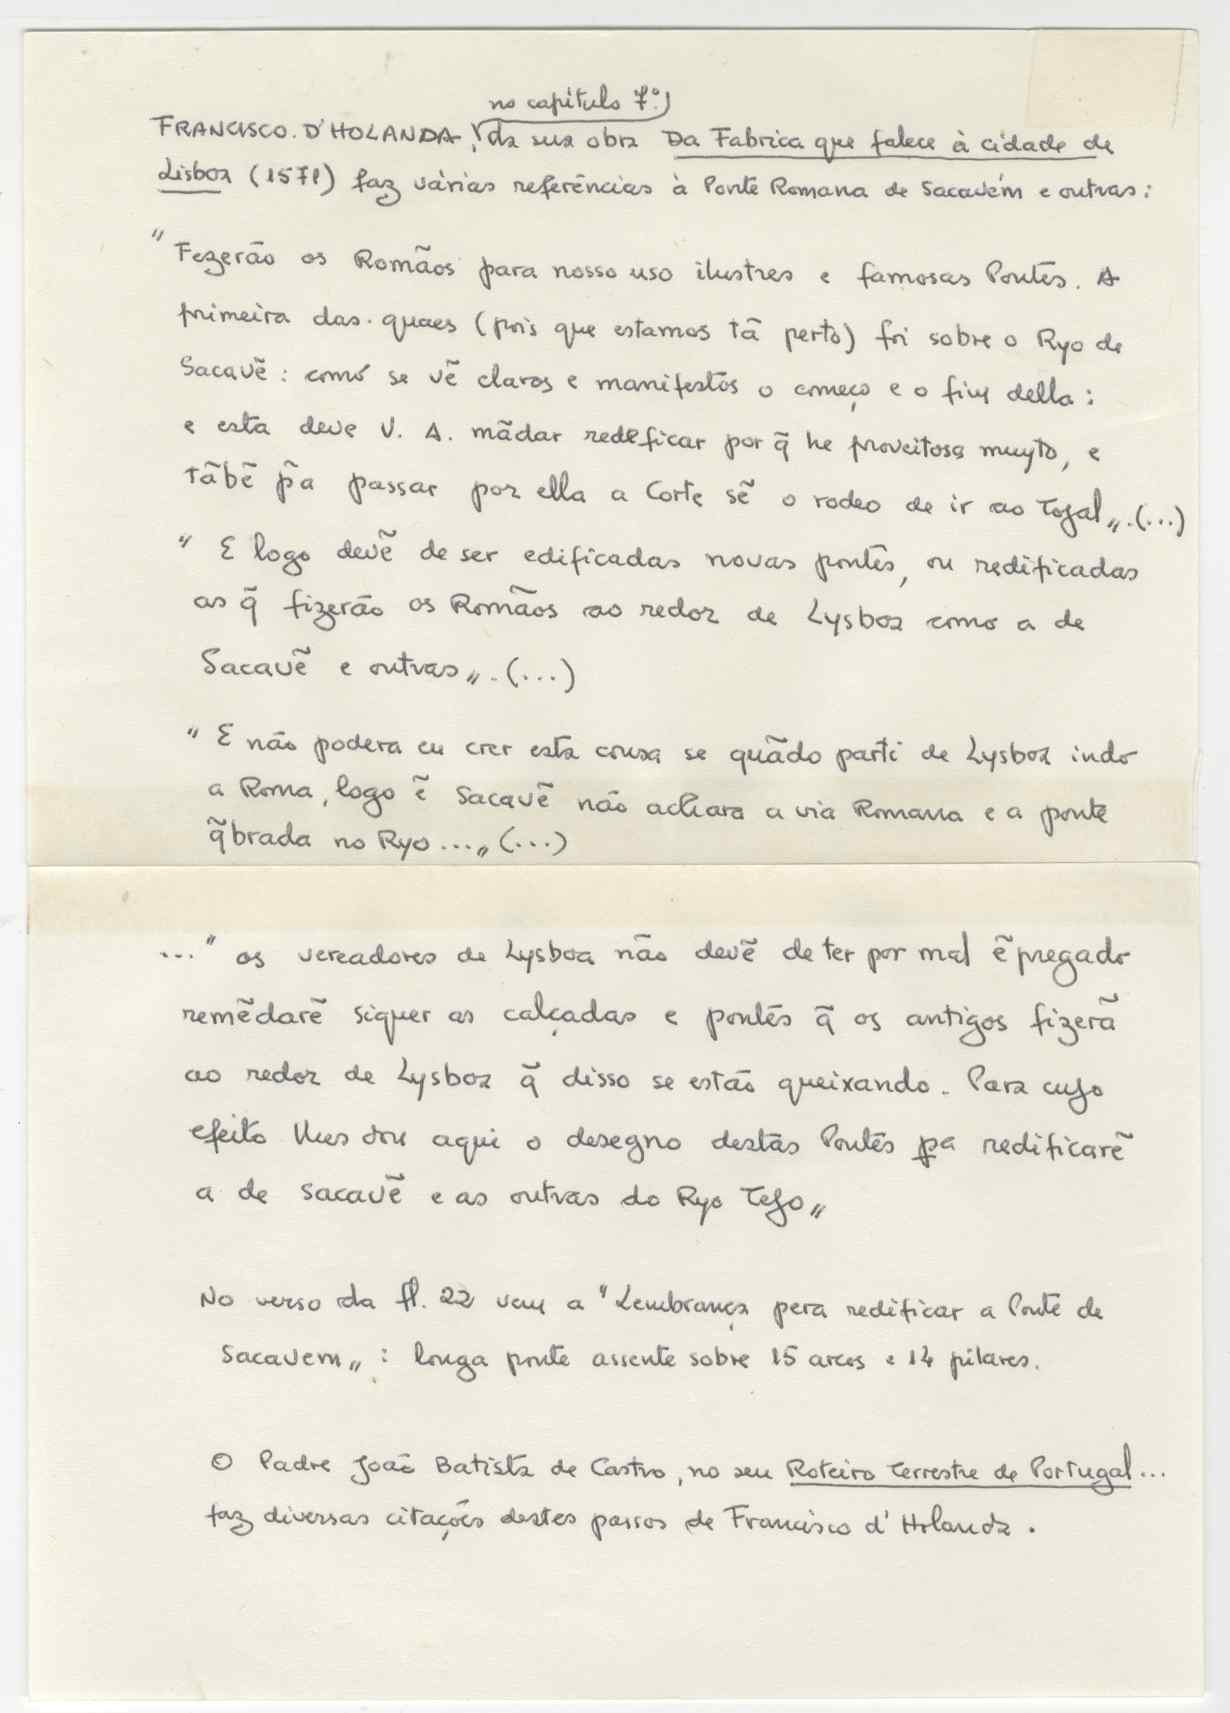 no capítulo 7º)
FRANCISCO. D'HOLANDA, da sua obra Da Fabrica que falece à cidade de
Lisboa (1571) faz várias referências à Ponte Romana de Sacavém e outras:
" Fezerão os Romãos para nosso uso ilustres e famosas Pontes. A
primeira das quaes (pois que estamos tã perto) foi sobre o Ryo de
Sacavẽ : como se vẽ claros e manifestos o começo e o fim della :
e esta deve V. A. mãdar redeficar por q̃ he proveitosa muyto, e
tãbẽ p̃a passar por ella a Corte sẽ o rodeo de ir ao Tojal„.(...)
" E logo devẽ de ser edificadas novas pontes, ou redificadas
as q̃ fizerão os Romãos ao redor de Lysboa como a de
Sacavẽ e outras„. (...)
" E não podera eu crer esta cousa se quãdo parti de Lysboa indo
a Roma, logo ẽ Sacavẽ não achara a via Romana e a ponte
q̃brada no Ryo ...„ (...)
..." os vereadores de Lysboa não devẽ de ter por mal ẽpregado
remẽdarẽ siquer as calçadas e pontes q̃ os antigos fizerã
ao redor de Lysboa q̃ disso se estão queixando. Para cujo
efeito lhes dou aqui o desegno destas Pontes pa redificarẽ
a de Sacavẽ e as outras do Ryo Tejo„
No verso da fl. 22 vem a "Lembrança pera redificar a Ponte de
Sacavem„ : longa ponte assente sobre 15 arcos e 14 pilares.
O Padre João Batista de Castro, no seu Roteiro Terrestre de Portugal...
faz diversas citações destes passos de Francisco d'Holanda.